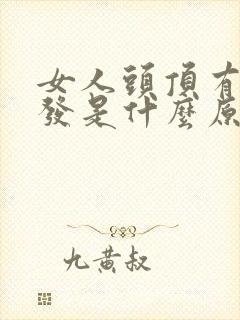 女人頭頂有
發是什麼原
九黃叔